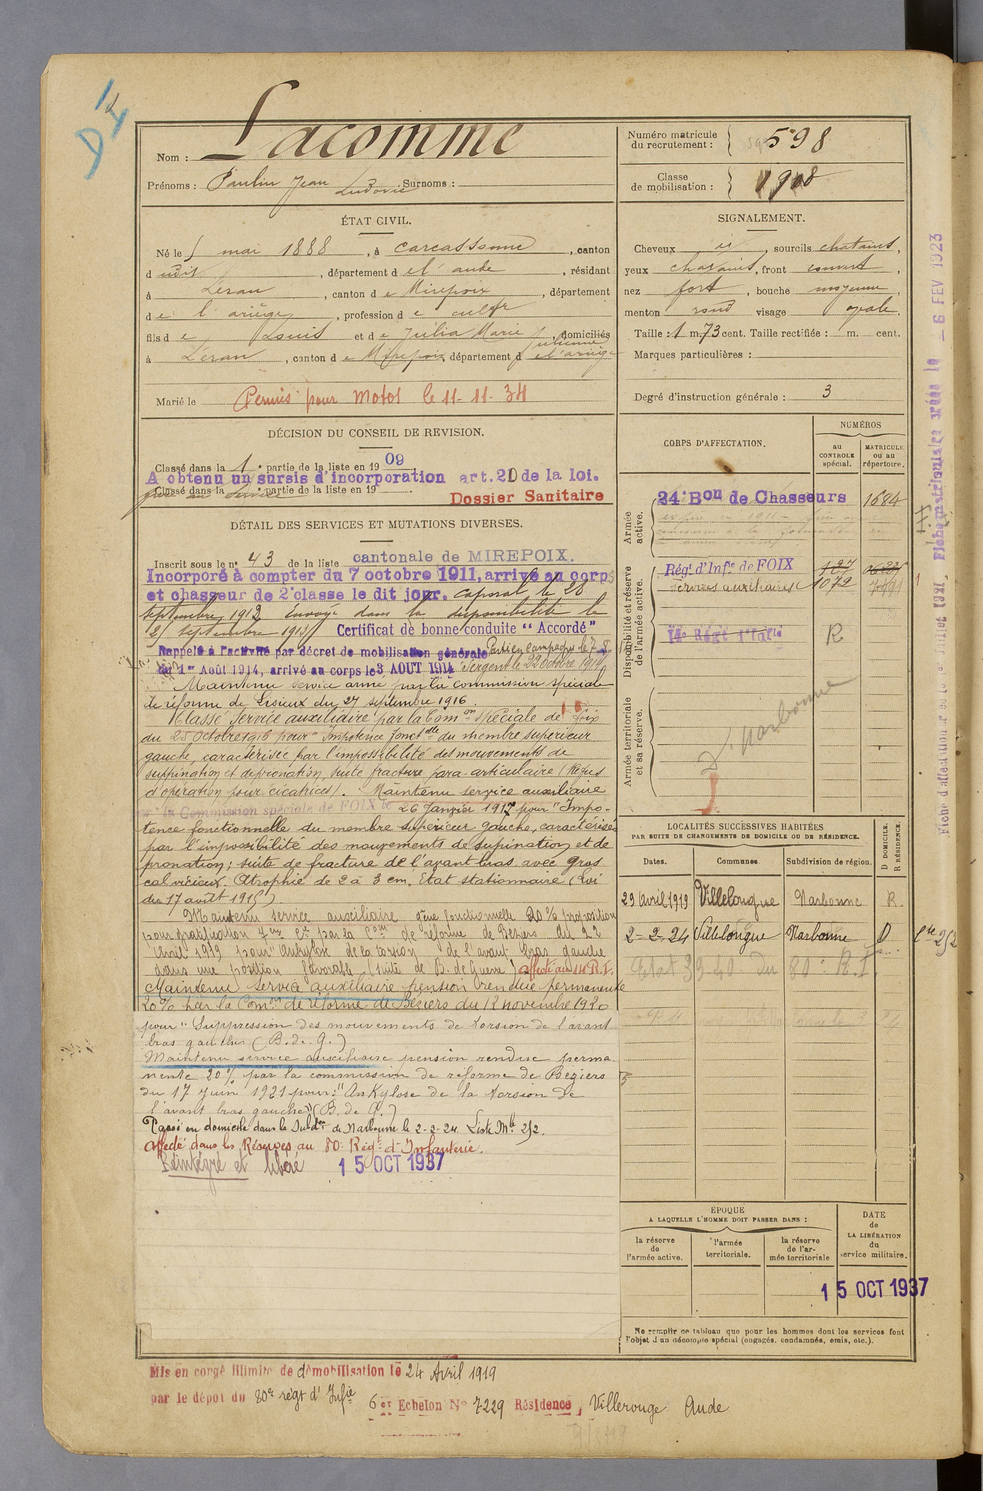 D I
Nom : Lacomme
Prénoms : Paulin Jean Ludovic Surnoms :
Numéro matricule du recrutement : 598
Classe de mobilisation : 1908
ÉTAT CIVIL.
Né le 5 mai 1888, à Carcassonne, canton
dudit, département de l'aude, résidant
à Léran, canton de Mirepoix, département
de l'ariège, profession de cultr
fils de Louis et de Julia Marie Julienne, domiciliés
à Léran, canton de Mirepoix, département de l'ariège
Marié le
Permis pour Motos le 11-11-34
SIGNALEMENT.
Cheveux, sourcils chatains,
yeux chatains, front couvert,
nez fort, bouche moyenne,
menton rond visage ovale.
Taille : 1 m. 73 cent. Taille rectifiée : m. cent.
Marques particulières :
Degré d'instruction générale : 3
DÉCISION DU CONSEIL DE REVISION.
Classé dans la 1e partie de la liste en 1909
A obtenu un sursis d'incorporation art. 20 de la loi.
Classé dans la partie de la liste en 19
Dossier Sanitaire
DÉTAIL DES SERVICES ET MUTATIONS DIVERSES.
Inscrit sous le no 43 de la liste cantonale de MIREPOIX.
Incorporé à compter du 7 octobre 1911, arrivé au corps
et chasseur de 2e classe le dit jour. Caporal le 28
septembre 1912 Envoyé dans la disponibilité le
septembre 1913 Certificat de bonne conduite "Accordé"
Rappelé à l'activité par décret de mobilisation générale
du 1er Août 1914, arrivé au corps le 3 AOUT 1914 Sergent le 22 octobre 1914
Maintenu service armé par la commission spéciale
de réforme de Lisieux du 27 septembre 1916.
Classé Service auxiliaire par la Comon Spéciale de Foix
du 25 octobre 1916 pour "Impotence fonctlle du membre supérieur
gauche, caractérisée par l'impossibilité des mouvements de
suppination et de pronation, suite fracture para-articulaire (Refus
d'opération pour cicatrices). Maintenu service auxiliaire
par la Commission spéciale de FOIX le 26 Janvier 1917 pour "Impo-
tence fonctionnelle du membre supérieur gauche, caractérisée
par l'impossibilité des mouvements de supination et de
pronation; suite de fracture de l'avant bras avec gros
cal vicieux. Atrophie de 2 à 3 cm. Etat stationnaire (Loi
du 17 août 1915).
Maintenu service auxiliaire gêne fonctionnelle 20 % proposition
pour gratification par la Com de réforme de Béziers du 22
1919 pour "Ankylose de la torsion de l'avant bras gauche
dans une position favorable (suite de B. de Guerre) affecté au 14 R.I.
Maintenu service auxiliaire pension rendue permanente
20 % par la Comon de réforme de Béziers du 12 novembre 1920
pour "Suppression des mouvements de torsion de l'avant
bras gauche (B. d. G.)
Maintenu service auxiliaire pension rendue perma
nente 20 % par la commission de réforme de Béziers
du 17 Juin 1921 pour: "Ankylose de la torsion de
l'avant bras gauche" (B. de G.)
Passé en domicile dans la Subdon de Narbonne le 2-2-24. Liste Mle 2/2.
affecté dans les Réserves au 80e Régt d'Infanterie.
Réintégré et libéré 15 OCT 1937
CORPS D'AFFECTATION.
NUMÉROS
au CONTROLE spécial.
MATRICULE ou au répertoire.
Armée active.
24e Bon de Chasseurs 1684
Disponibilité et réserve de l'armée active.
Régt d'Infie de FOIX 127
Services auxiliaires 1079
14e Régt d'Infie R
Armée territoriale et sa réserve.
Narbonne
LOCALITÉS SUCCESSIVES HABITÉES
PAR SUITE DE CHANGEMENTS DE DOMICILE OU DE RÉSIDENCE.
Dates. Communes. Subdivision de région. D DOMICILE. R RÉSIDENCE.
29 Avril 1919 Villelongue Narbonne R.
2-2-24 Villelongue Narbonne D Lte 2/2
Etat 39-40 du 80e R.I.
ÉPOQUE
A LAQUELLE L'HOMME DOIT PASSER DANS :
la réserve de l'armée active.
l'armée territoriale.
la réserve de l'armée territoriale
DATE de LA LIBÉRATION du service militaire.
15 OCT 1937
Ne remplir ce tableau que pour les hommes dont les services font
l'objet d'un décompte spécial (engagés, condamnés, omis, etc.).
Mis en congé illimité de démobilisation le 24 Avril 1919
par le dépôt du 80e régt d'Infie 6e Echelon No 7229 Résidence, Villerouge Aude
6 FEV 1923